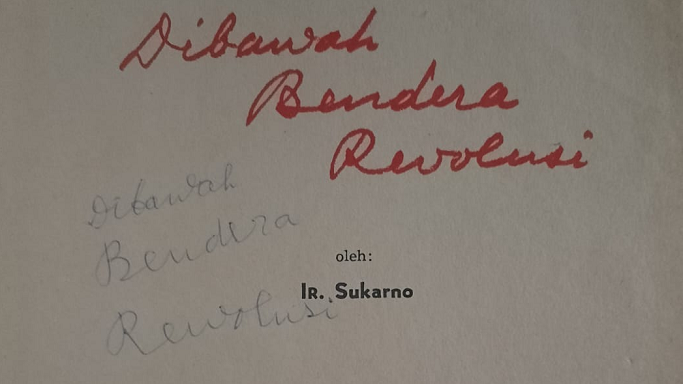 Dibawah
Bendera
Revolusi
Dibawah
Bendera
Revolusi
oleh:
IR. Sukarno